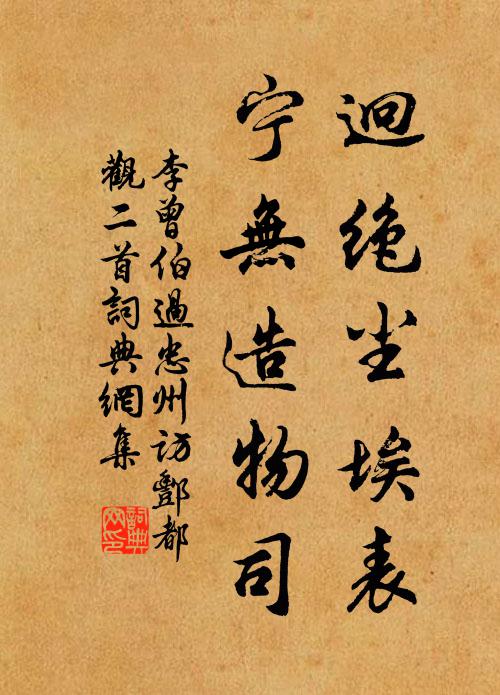 迥绝尘埃表
宁無造物司
李曾伯過忠州访酆都
觀二首詞典網集
詞典